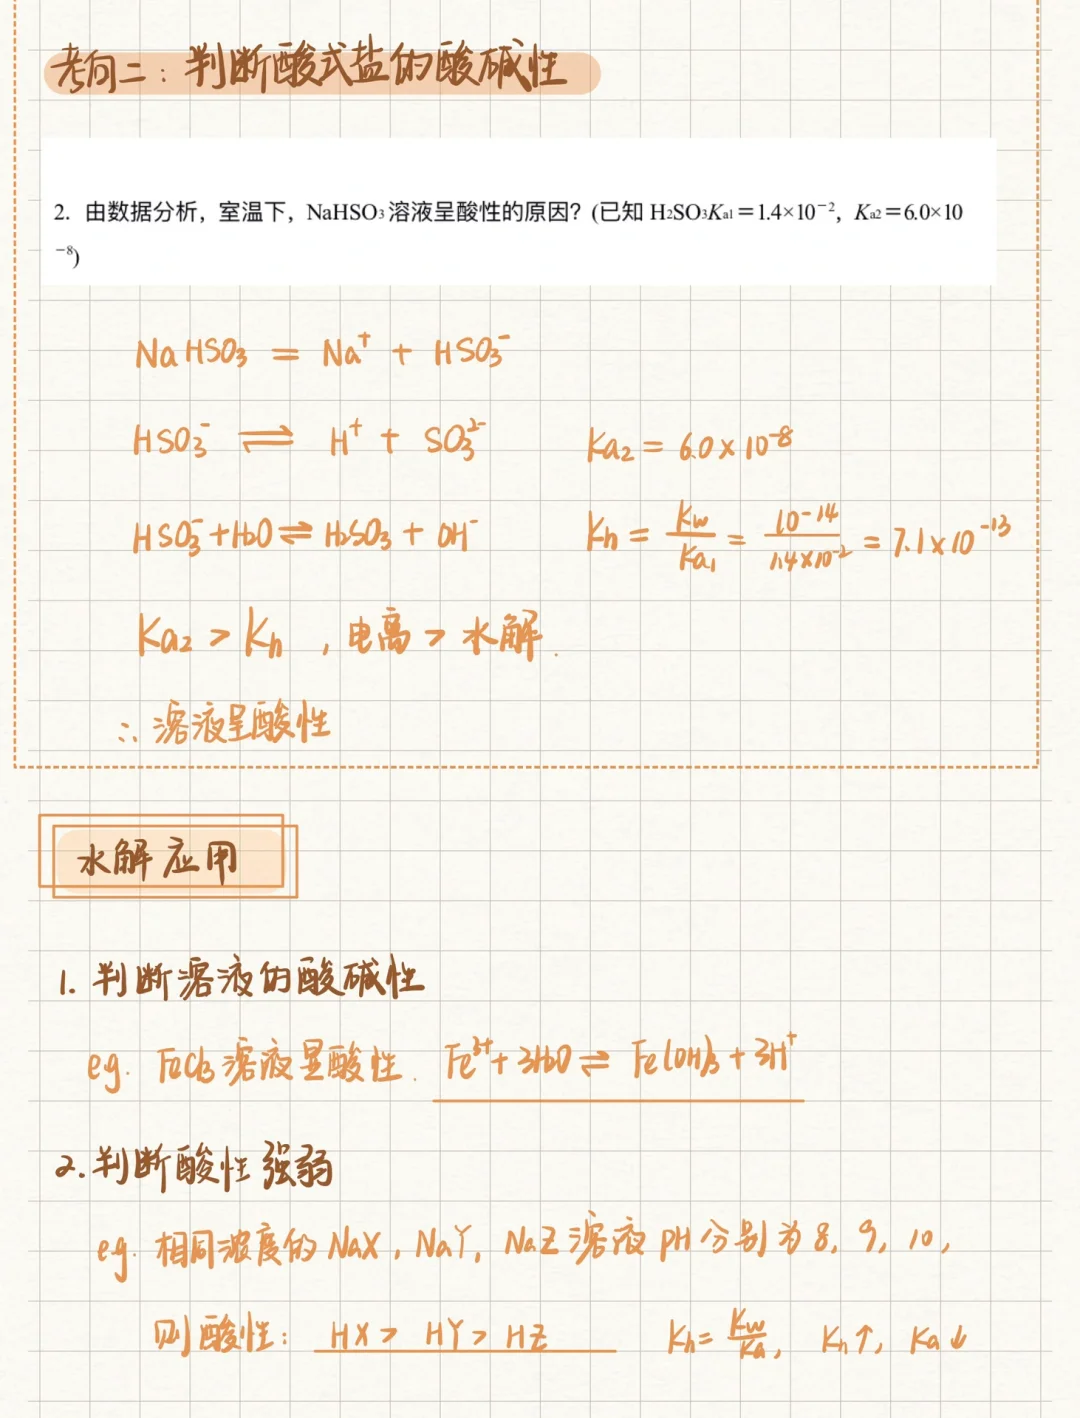 考向二：判断酸式盐的酸碱性
2. 由数据分析，室温下，NaHSO₃ 溶液呈酸性的原因？(已知 H₂SO₃Kₐ₁＝1.4×10⁻²，Kₐ₂＝6.0×10
⁻⁸)
NaHSO₃ = Na⁺ + HSO₃⁻
HSO₃⁻ ⇌ H⁺ + SO₃²⁻ Ka₂ = 6.0×10⁻⁸
HSO₃⁻+H₂O⇌H₂SO₃+OH⁻ Kh = Kw/Ka₁ = 10⁻¹⁴/1.4×10⁻² = 7.1×10⁻¹³
Ka₂ > Kh，电离 > 水解.
∴溶液呈酸性
水解应用
1. 判断溶液的酸碱性
eg. FeCl₃溶液显酸性. Fe³⁺+3H₂O⇌Fe(OH)₃+3H⁺
2. 判断酸性强弱
eg. 相同浓度的NaX，NaY，NaZ溶液pH分别为8，9，10，
则酸性：HX> HY> HZ Kh=Kw/Ka，Kh↑，Ka↓